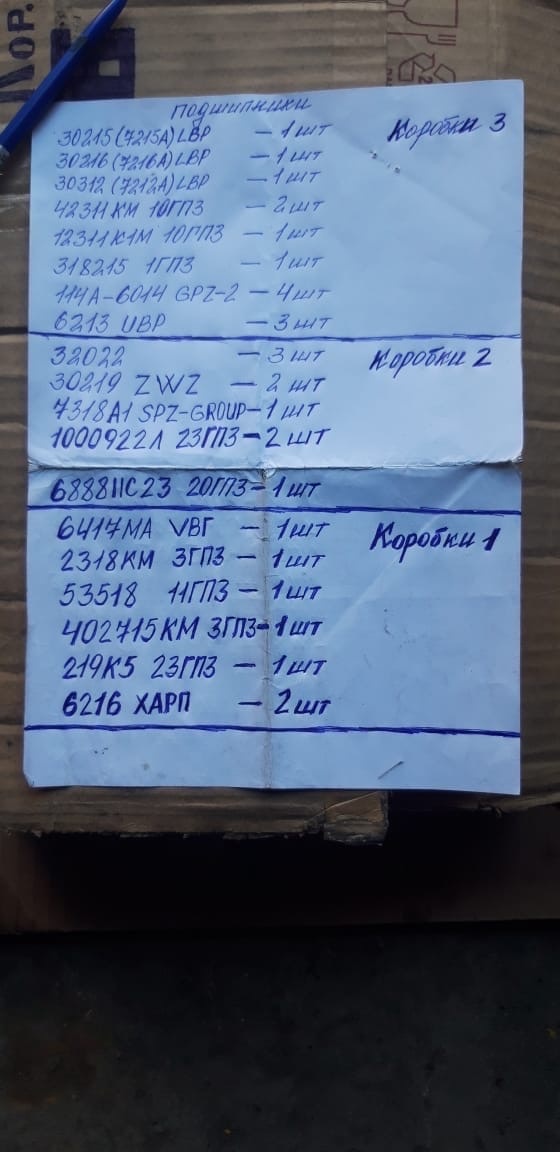 ЛОР.
Подшипники
30215(7215А) LBP — 1 шт Коробки 3
30216(7216А) LBP — 1 шт
30312(7212А) LBP — 1 шт
42311КМ 10ГПЗ — 2 шт
12311К1М 10ГПЗ — 1 шт
318215 1ГПЗ — 1 шт
114А-6014 GPZ-2 — 4 шт
6213 UBP — 3 шт
32022 — 3 шт Коробки 2
30219 ZWZ — 2 шт
7318А1 SPZ-GROUP — 1 шт
1000922Л 23ГПЗ — 2 шт
6888НС23 20ГПЗ — 1 шт
6417МА VBГ — 1 шт Коробки 1
2318КМ 3ГПЗ — 1 шт
53518 11ГПЗ — 1 шт
402715КМ 3ГПЗ — 1 шт
219К5 23ГПЗ — 1 шт
6216 ХАРП — 2 шт